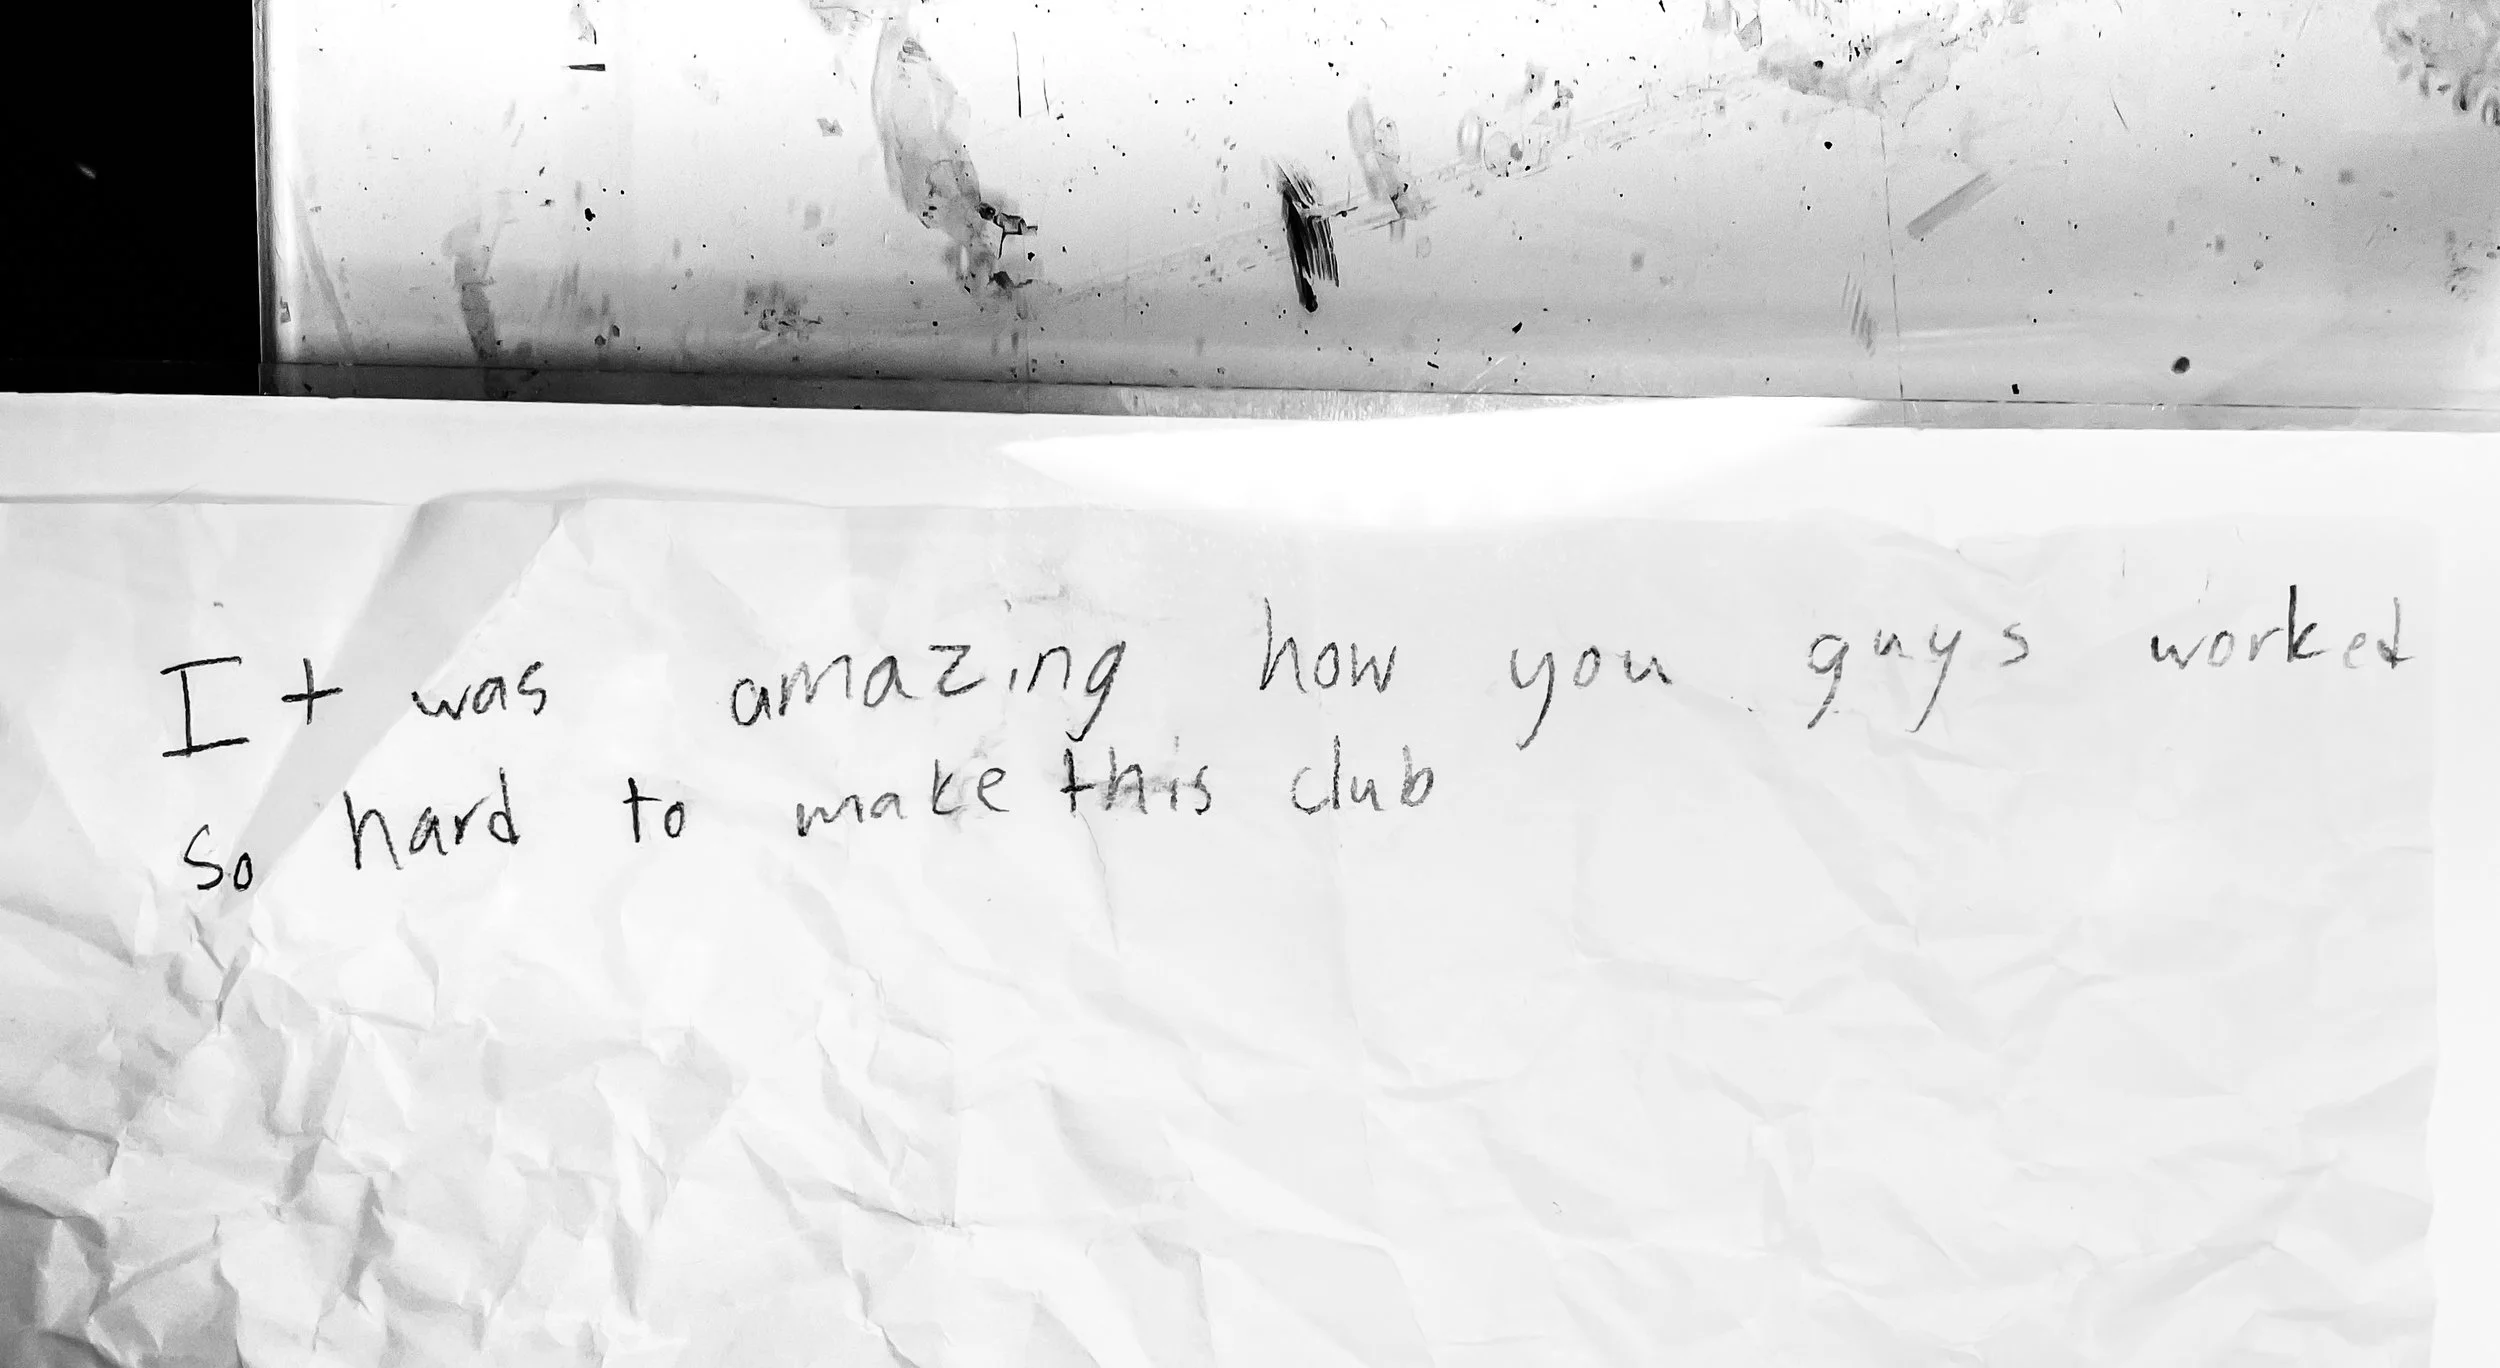 It was amazing how you guys worked
so hard to make this club